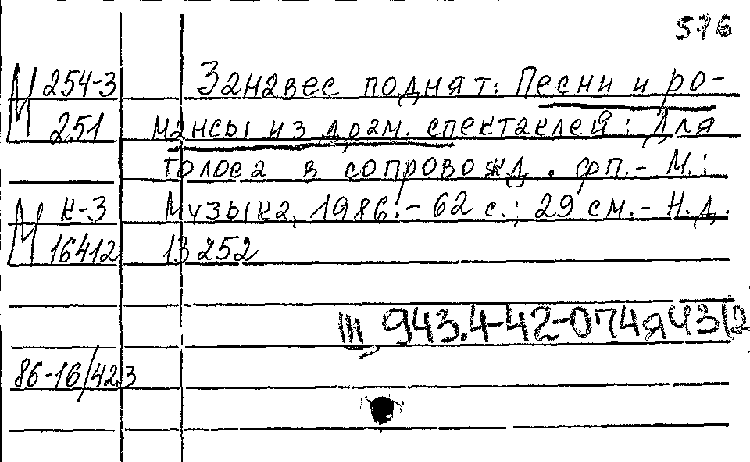 576
М 254-3 Занавес поднят: Песни и ро-
251 мансы из драм. спектаклей: Для
голоса в сопровожд. фп. - М.:
М Н-3 Музыка, 1986. - 62 с.; 29 см. - Н.д.
16412 13252
Ш 943.4-42-074я43
86-16/423